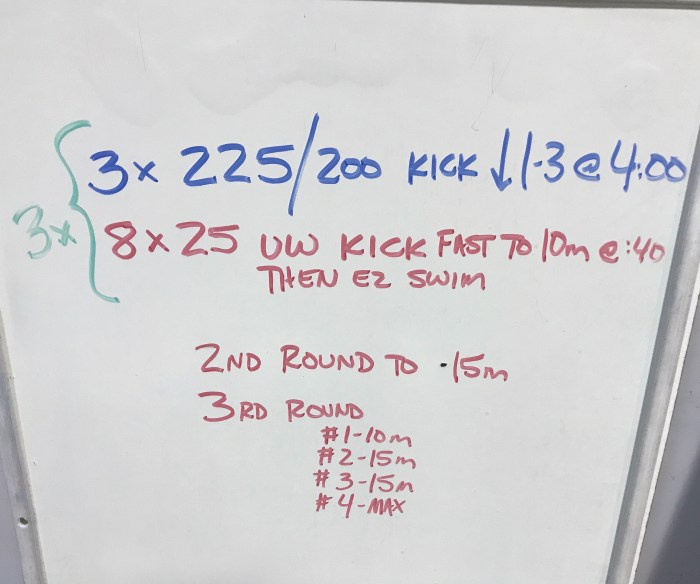 3x 225/200 KICK ↓ 1-3 @ 4:00
3x
8 x 25 UW KICK FAST TO 10m @ :40
THEN EZ SWIM
2ND ROUND TO 15m
3RD ROUND
#1-10m
#2-15m
#3-15m
#4-MAX